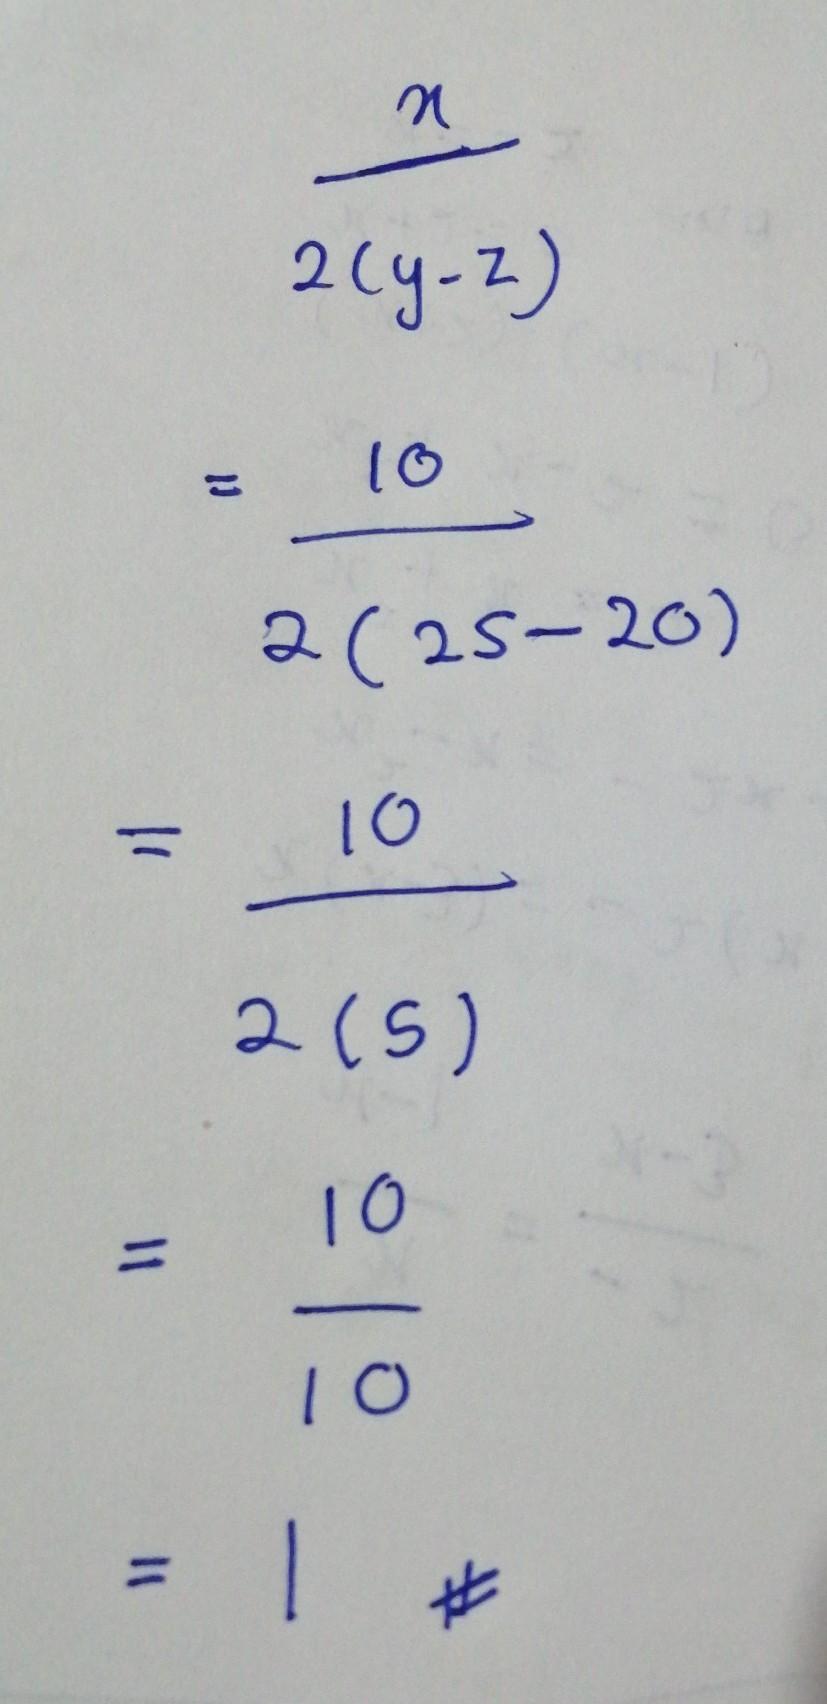 x
2(y-z)
= 10
2(25-20)
= 10
2(5)
= 10
10
= 1 #